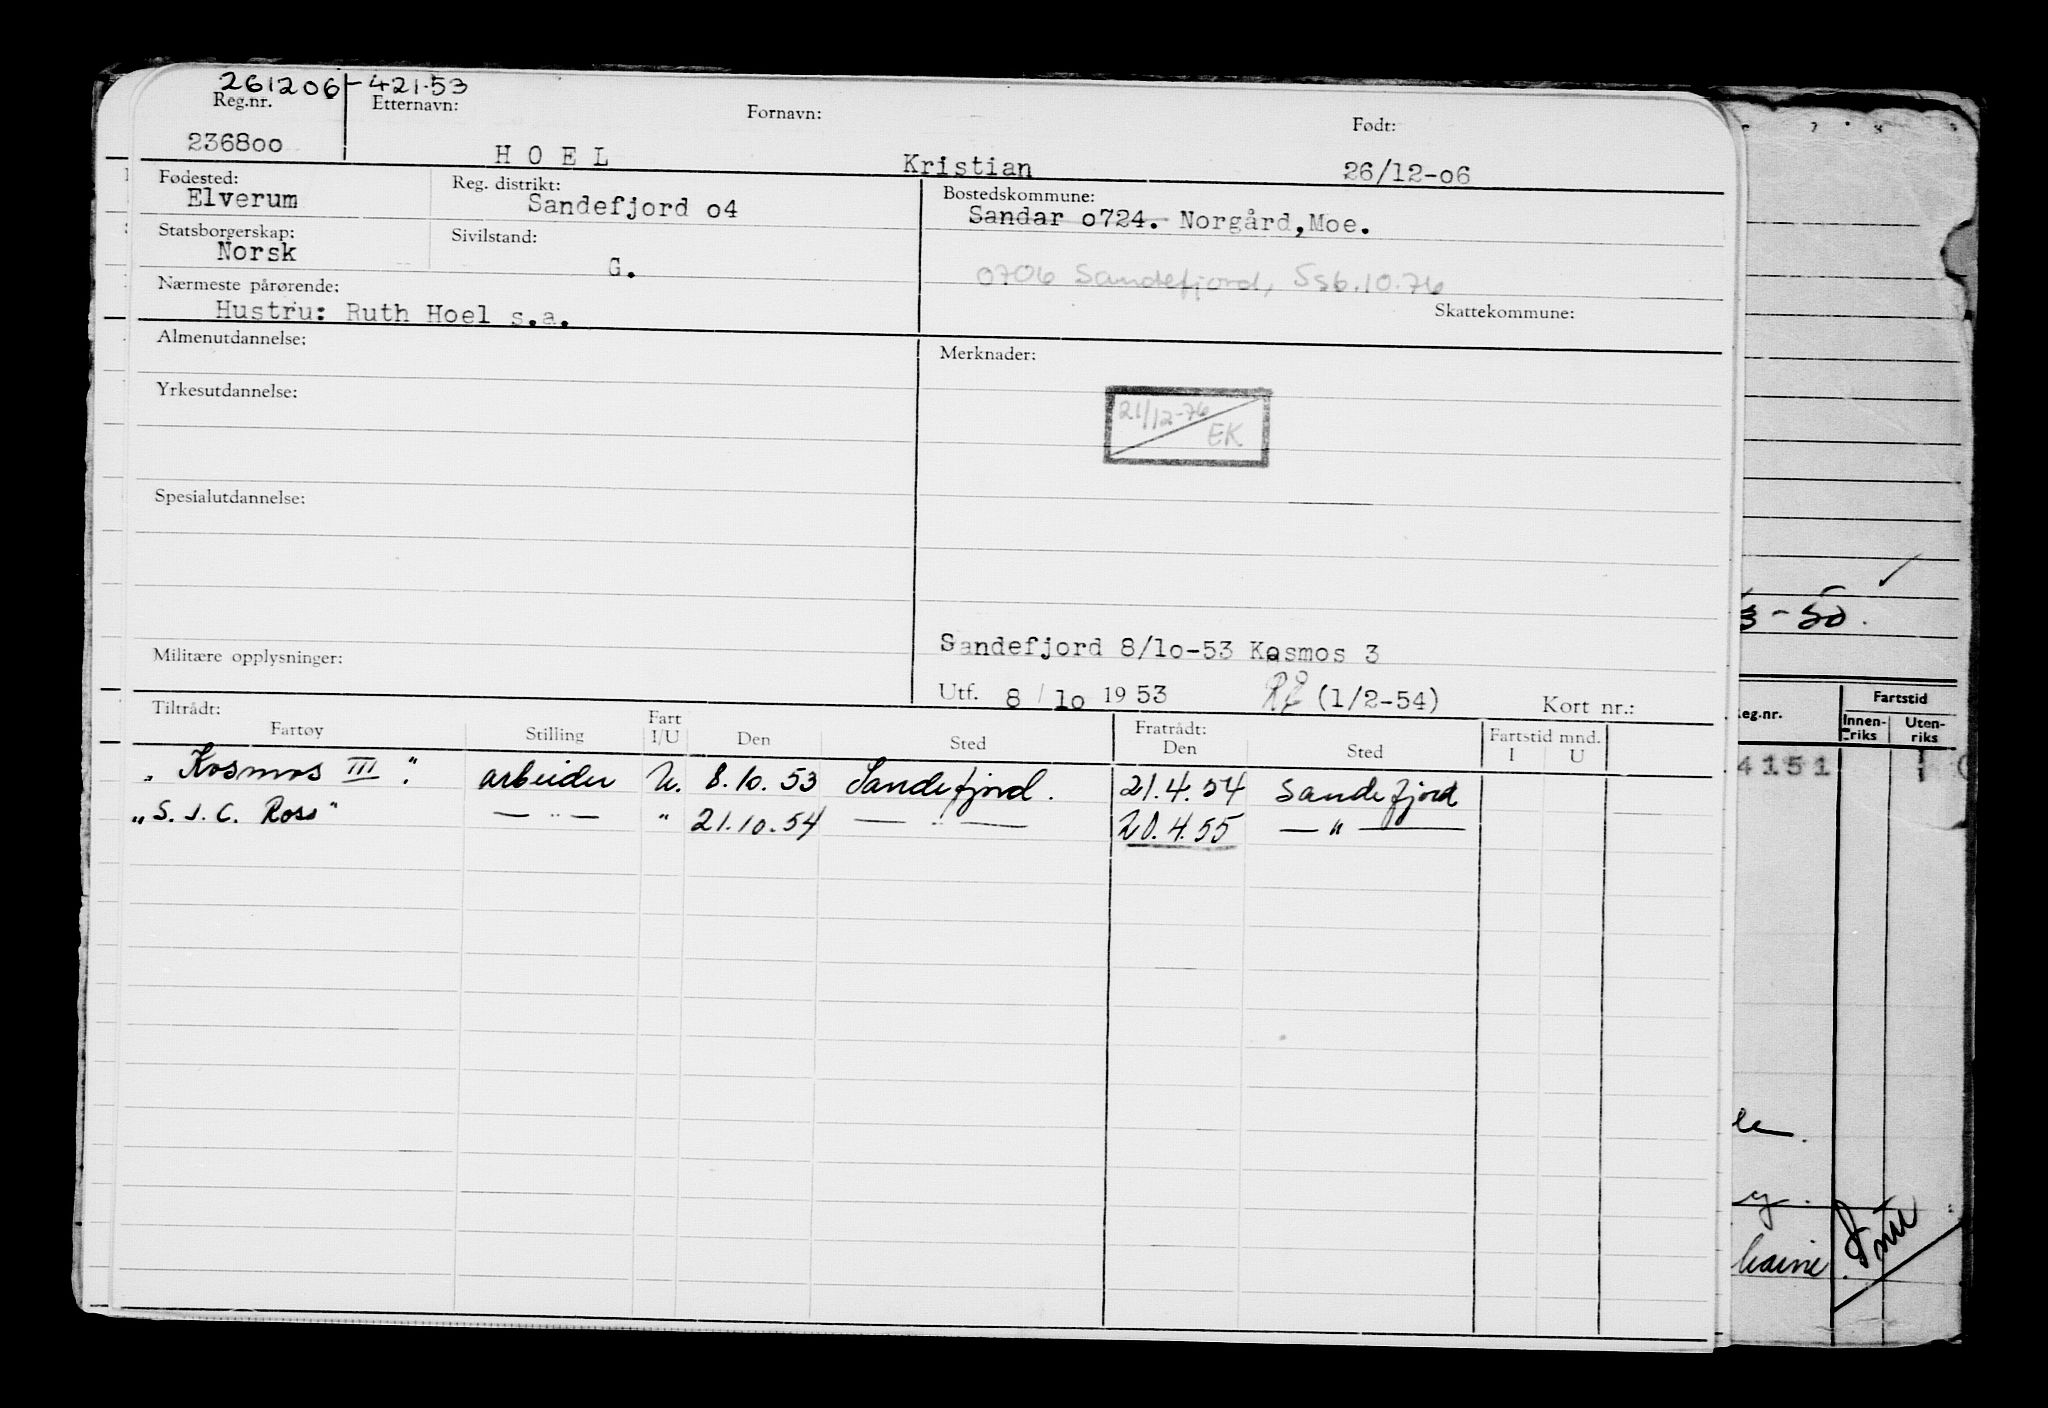 261206-421.53
Reg.nr. Etternavn: Fornavn: Født:
236800 HOEL Kristian 26/12-06
Fødested: Reg. distrikt: Bostedskommune:
Elverum Sandefjord 04 Sandar 0724. Norgård, Moe.
Statsborgerskap: Sivilstand:
Norsk G.
0706 Sandefjord, Ssb.10.76
Nærmeste pårørende: Skattekommune:
Hustru: Ruth Hoel s.a.
Almenutdannelse: Merknader:
Yrkesutdannelse:
21/12-76
EK
Spesialutdannelse:
3-50.
Sandefjord 8/10-53 Kosmos 3
Militære opplysninger:
Utf. 8/10 1953 (1/2-54) Kort nr.:
Tiltrådt: Fratrådt:
Fartøy Stilling Fart I/U Den Sted Den Sted Fartstid mnd. I U
„Kosmos III“ arbeider U. 8.10.53 Sandefjord. 21.4.54 Sandefjord
„S. J. C. Ross" — " — " 21.10.54 — " — 20.4.55 — " —
eg.nr. Fartstid
Innen-riks Uten-riks
4151